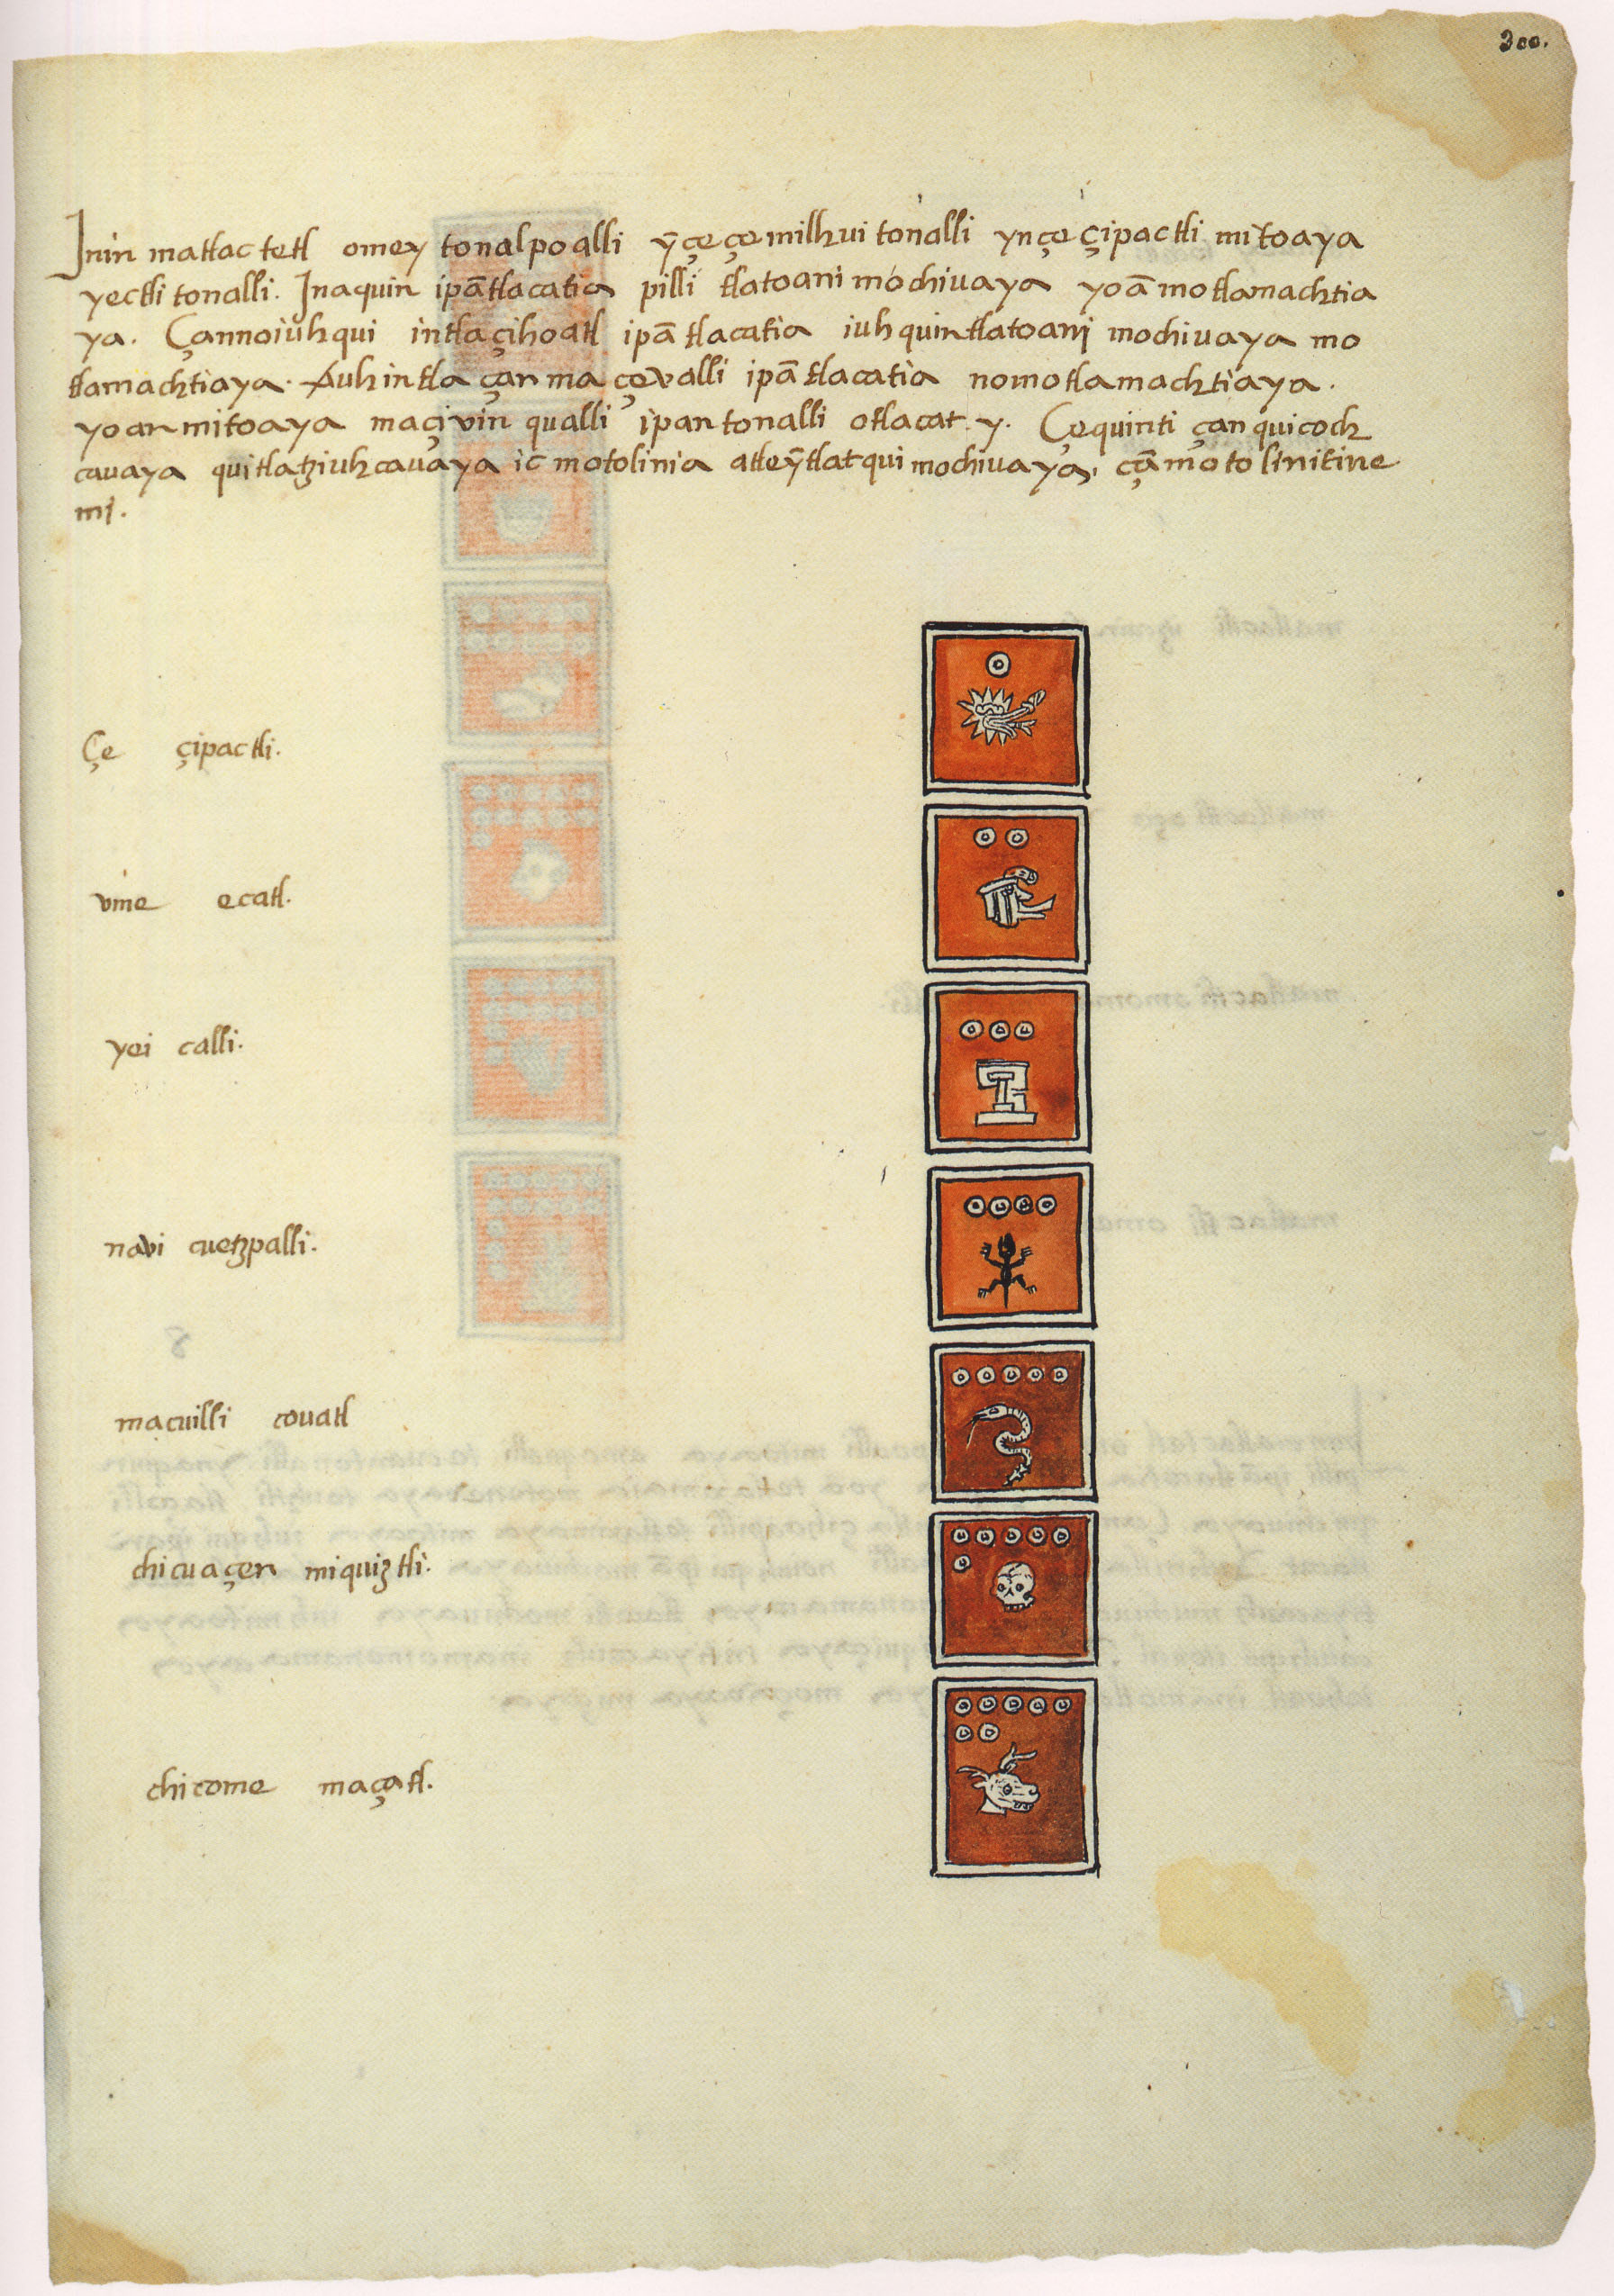 300.
Inin matlactetl omey tonalpoalli ỹ çeçemilhui tonalli yn çe çipactli mitoaya
yectli tonalli. Inaquin ipã tlacatia pilli tlatoani mochivaya yoã motlamachtia
ya. Çannoiuhqui intla çihoatl ipã tlacatia iuhquin tlatoani mochivaya mo
tlamachtiaya. Auh intla çan maçevalli ipã tlacatia nomotlamachtiaya.
yoan mitoaya maçivin qualli ipan tonalli otlacat y. Çequinti çan quicoch
cavaya quitlatziuhcavaya ic motolinia atleỹtlatqui mochivaya, çã motolinitine
mi.
Çe çipactli.
vme ecatl.
yei calli.
navi cuetzpalli.
macuilli covatl
chicuaçen miquiztli.
chicome maçatl.